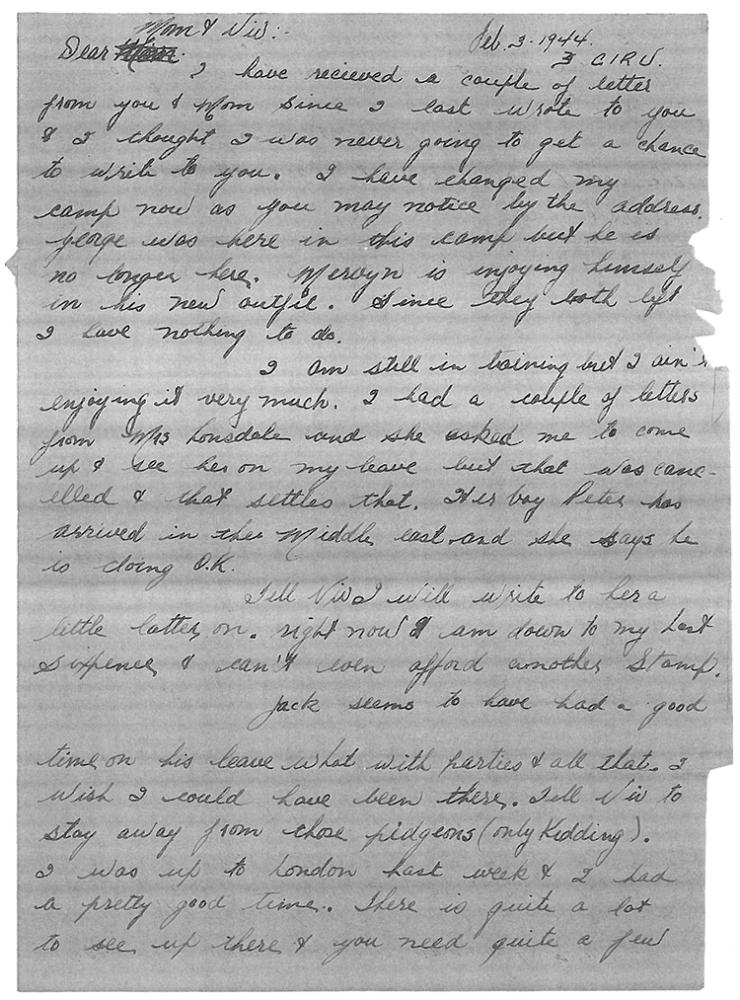 Mom & Viv:
Feb. 3. 1944.
Dear
3 CIRU.
I have recieved a couple of letter
from you & Mom since I last wrote to you
& I thought I was never going to get a chance
to write to you. I have changed my
camp now as you may notice by the address.
George was here in this camp but he is
no longer here. Mervyn is injoying himself
in his new outfit. Since they both left
I have nothing to do.
I am still in training but I ain't
enjoying it very much. I had a couple of letters
from Mrs Lonsdale and she asked me to come
up & see her on my leave but that was canc-
elled & that settles that. Her boy Peter has
arrived in the Middle east and she says he
is doing O.K.
Tell Viv I will write to her a
little latter on. right now I am down to my last
Sixpence & can't even afford another Stamp.
Jack seems to have had a good
time on his leave what with parties & all that. I
wish I could have been there. Tell Viv to
stay away from those pidgeons (only Kidding).
I was up to London last week & I had
a pretty good time. There is quite a lot
to see up there & you need quite a few